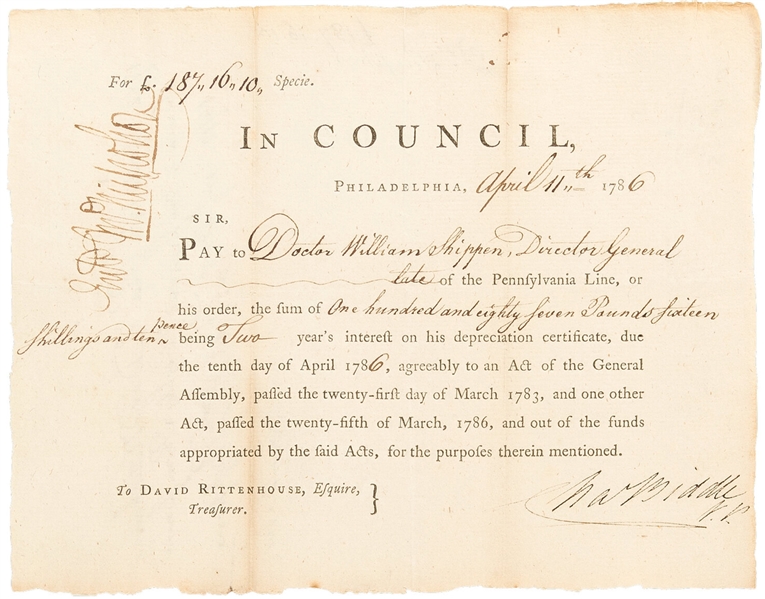 For £. 187,, 16,, 10,, Specie.
IN COUNCIL,
PHILADELPHIA, April 11,,th 1786
SIR,
PAY to Doctor William Shippen, Director General
late of the Pennſylvania Line, or
his order, the sum of One hundred and eighty seven Pounds sixteen
shillings and ten pence being Two year's intereſt on his depreciation certificate, due
the tenth day of April 1786, agreeably to an Act of the General
Aſſembly, paſſed the twenty-firſt day of March 1783, and one other
Act, paſſed the twenty-fifth of March, 1786, and out of the funds
appropriated by the ſaid Acts, for the purpoſes therein mentioned.
To DAVID RITTENHOUSE, Eſquire,
Treaſurer.
Cha Biddle
V. P.
Entd Jn Nicholson